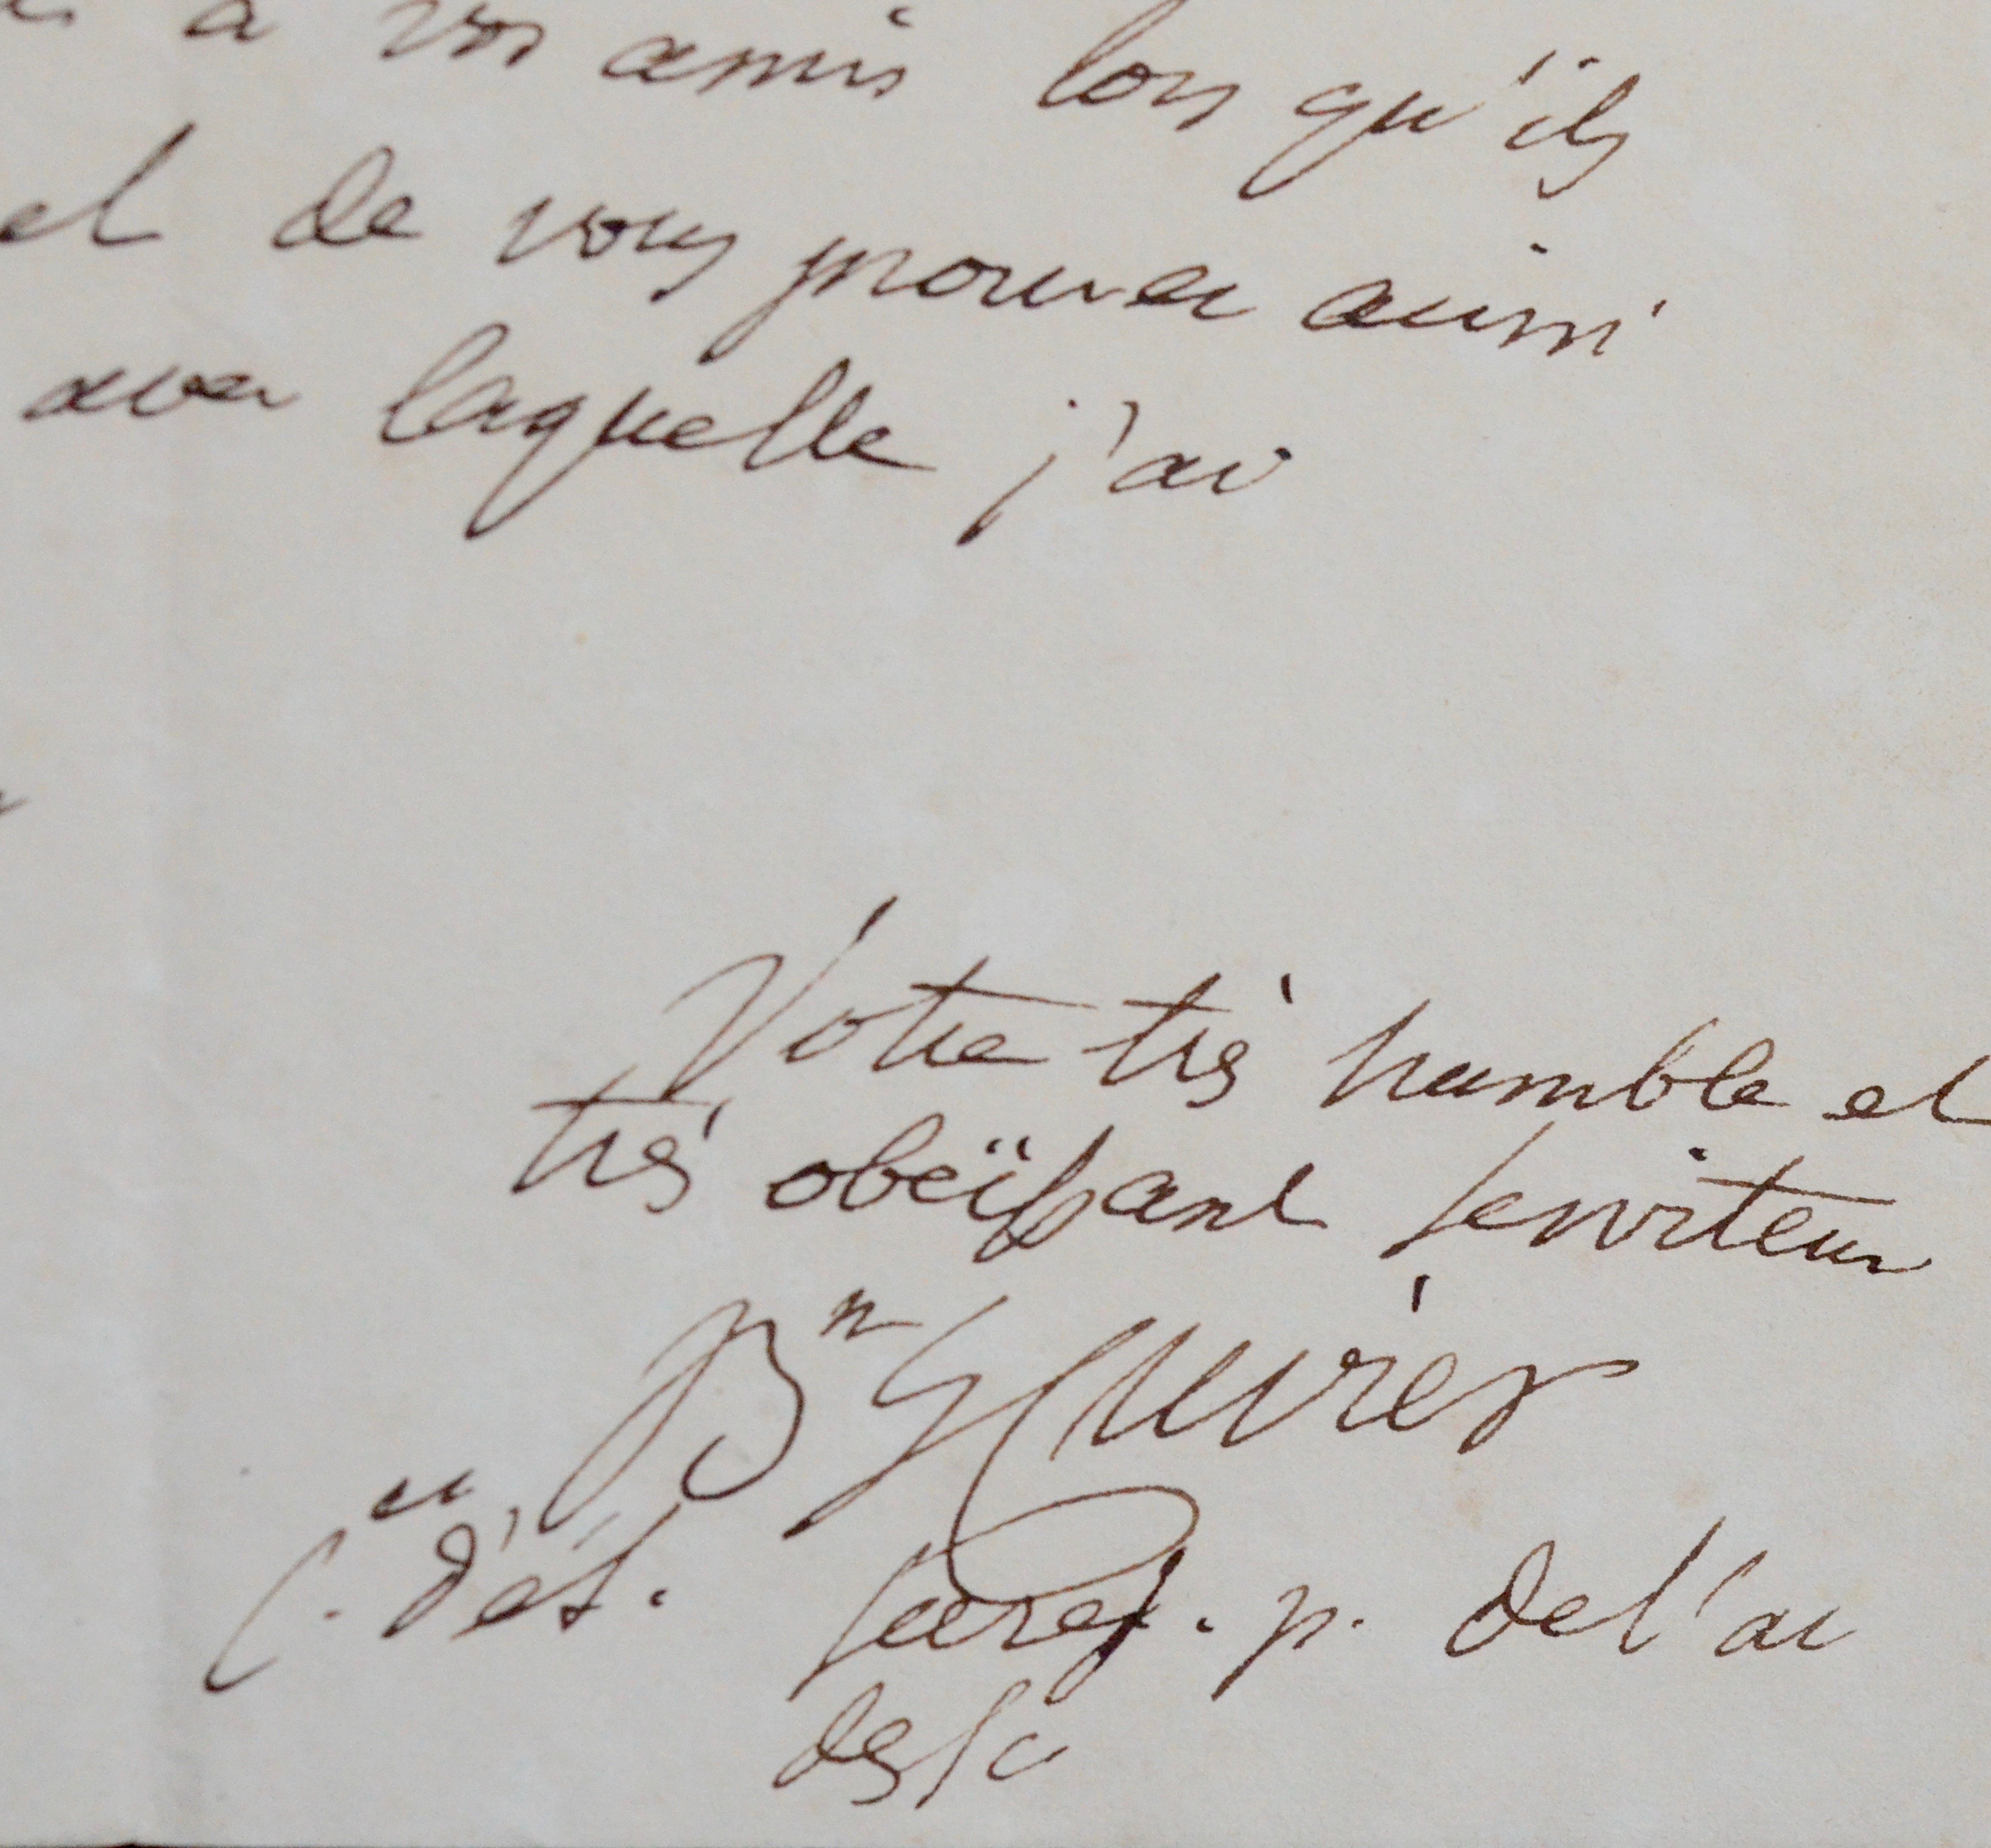 à vos amis lorsqu'ils
et de vous prouver ainsi
avec laquelle j'ai
Votre très humble et
très obéïssant serviteur
Bn G Cuvier
Cer. d'ét. secret. p. de l'ac
des sc